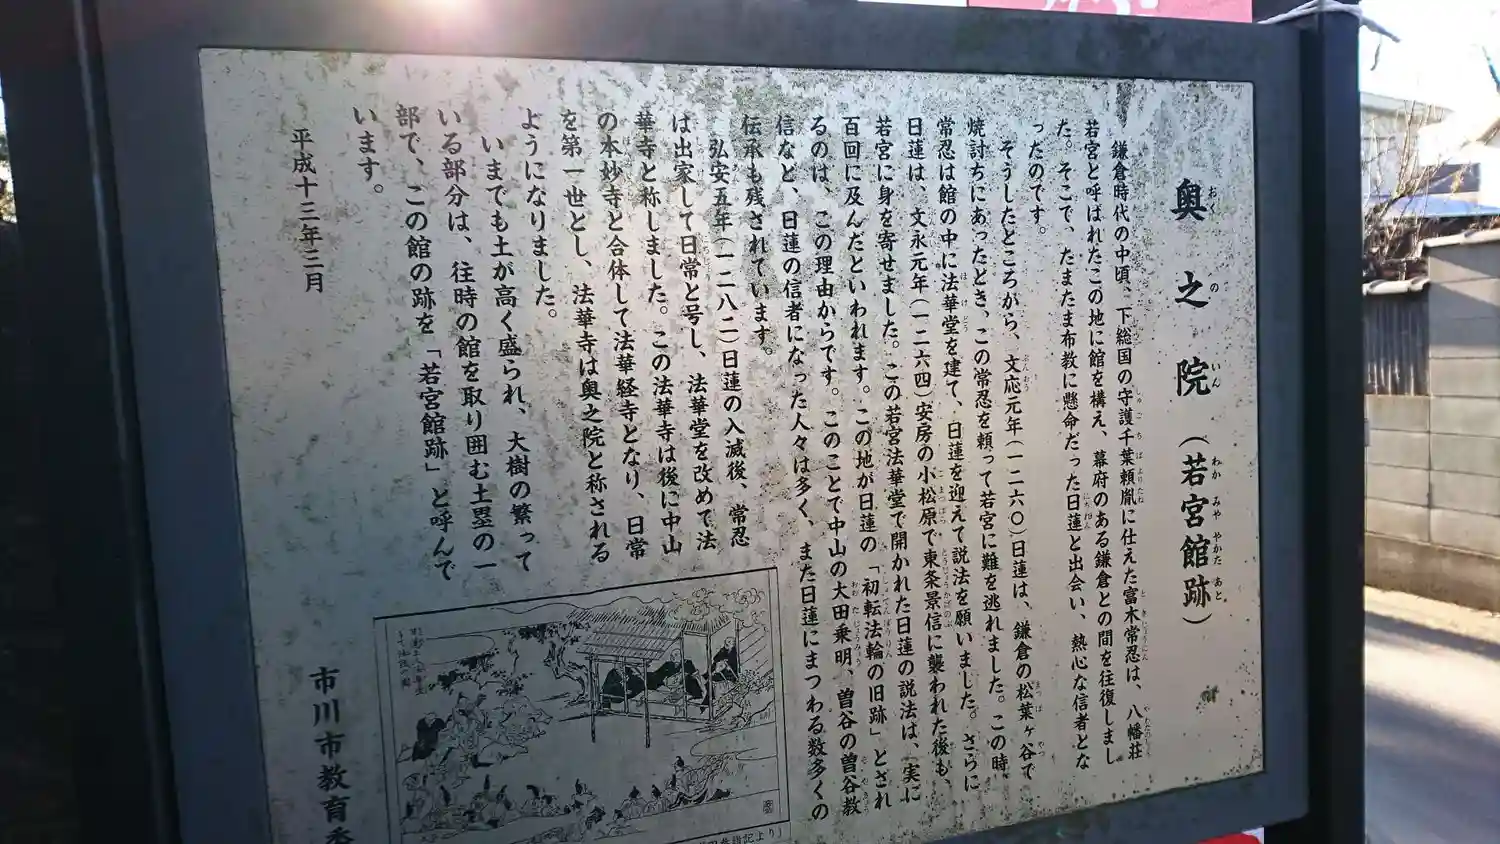 奥之院（若宮館跡）
鎌倉時代の中頃、下総国の守護千葉頼胤に仕えた富木常忍は、八幡荘
若宮と呼ばれたこの地に館を構え、幕府のある鎌倉との間を往復しまし
た。そこで、たまたま布教に懸命だった日蓮と出会い、熱心な信者とな
ったのです。
そうしたところから、文応元年（一二六〇）日蓮は、鎌倉の松葉ヶ谷で
焼討ちにあったとき、この常忍を頼って若宮に難を逃れました。この時
常忍は館の中に法華堂を建て、日蓮を迎えて説法を願いました。さらに
日蓮は、文永元年（一二六四）安房の小松原で東条景信に襲われた後も、
若宮に身を寄せました。この若宮法華堂で開かれた日蓮の説法は、実に
百回に及んだといわれます。この地が日蓮の「初転法輪の旧跡」とされ
るのは、この理由からです。このことで中山の大田乗明、曽谷の曽谷教
信など、日蓮の信者になった人々は多く、また日蓮にまつわる数多くの
伝承も残されています。
弘安五年（一二八二）日蓮の入滅後、常忍
は出家して日常と号し、法華堂を改めて法
華寺と称しました。この法華寺は後に中山
の本妙寺と合体して法華経寺となり、日常
を第一世とし、法華寺は奥之院と称される
ようになりました。
いまでも土が高く盛られ、大樹の繁って
いる部分は、往時の館を取り囲む土塁の一
部で、この館の跡を「若宮館跡」と呼んで
います。
平成十三年三月
市川市教育委